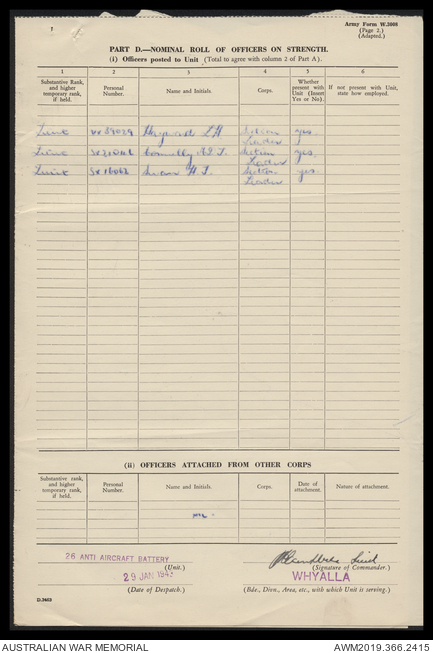 Army Form W.3008
(Page 2.)
(Adapted.)
PART D.—NOMINAL ROLL OF OFFICERS ON STRENGTH.
(i) Officers posted to Unit (Total to agree with column 2 of Part A).
1 2 3 4 5 6
Substantive Rank, and higher temporary rank, if held. Personal Number. Name and Initials. Corps. Whether present with Unit (Insert Yes or No). If not present with Unit, state how employed.
Lieut Section Leader yes
Lieut Connelly Section Leader yes
Lieut Swan H.J. Section Leader yes
(ii) OFFICERS ATTACHED FROM OTHER CORPS
Substantive rank, and higher temporary rank, if held. Personal Number. Name and Initials. Corps. Date of attachment. Nature of attachment.
26 ANTI AIRCRAFT BATTERY
(Unit.)
Lieut
(Signature of Commander.)
29 JAN 1943
(Date of Despatch.)
WHYALLA
(Bde., Divn., Area, etc., with which Unit is serving.)
D.3403
AUSTRALIAN WAR MEMORIAL
AWM2019.366.2415